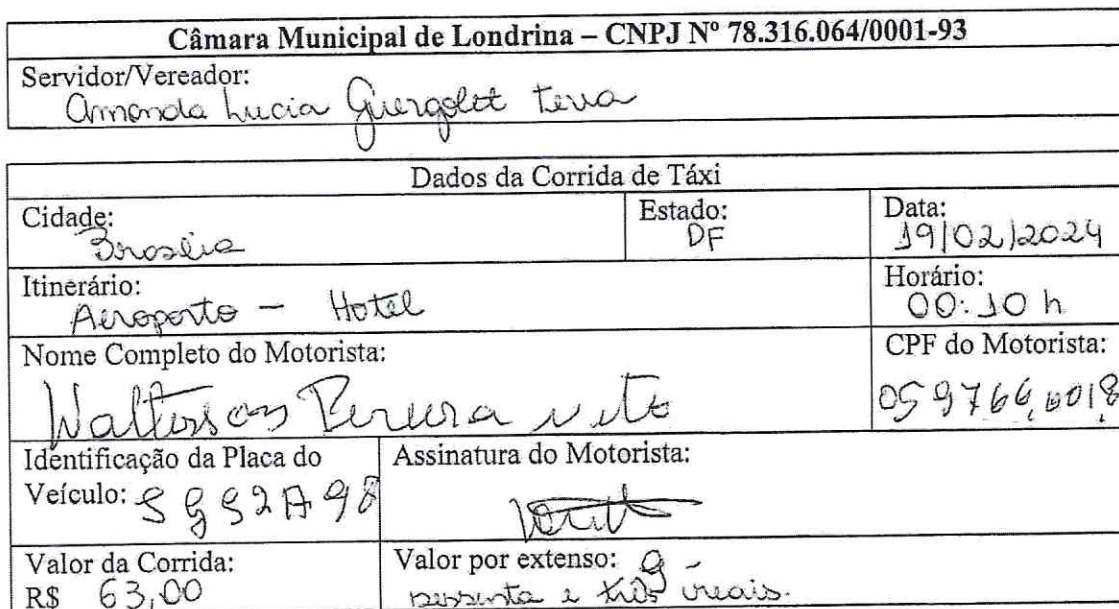 Câmara Municipal de Londrina – CNPJ Nº 78.316.064/0001-93
Servidor/Vereador:
Amanda Lucia Guergolet Terra
Dados da Corrida de Táxi
Cidade:
Brasília
Estado:
DF
Data:
19/02/2024
Itinerário:
Aeroporto – Hotel
Horário:
00:10 h
Nome Completo do Motorista:
Pereira
CPF do Motorista:
Identificação da Placa do
Veículo:
Assinatura do Motorista:
Valor da Corrida:
R$ 63,00
Valor por extenso:
sessenta e três reais.